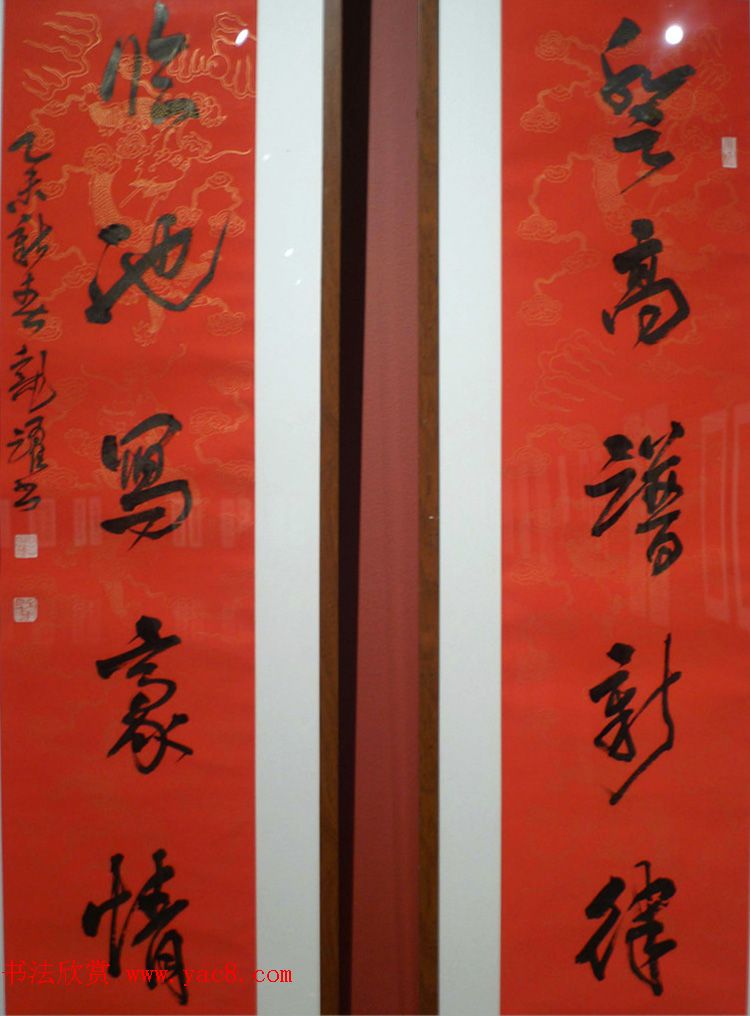 登高譜新律
临池寫豪情
乙未新春龍躍书
书法欣赏 www.yac8.com